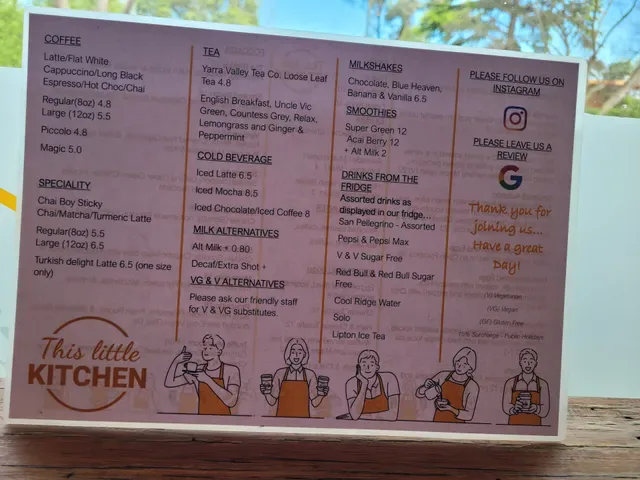 COFFEE
Latte/Flat White
Cappuccino/Long Black
Espresso/Hot Choc/Chai
Regular(8oz) 4.8
Large (12oz) 5.5
Piccolo 4.8
Magic 5.0
SPECIALITY
Chai Boy Sticky
Chai/Matcha/Turmeric Latte
Regular(8oz) 5.5
Large (12oz) 6.5
Turkish delight Latte 6.5 (one size
only)
This little
KITCHEN
TEA
Yarra Valley Tea Co. Loose Leaf
Tea 4.8
English Breakfast, Uncle Vic
Green, Countess Grey, Relax,
Lemongrass and Ginger &
Peppermint
COLD BEVERAGE
Iced Latte 6.5
Iced Mocha 8.5
Iced Chocolate/Iced Coffee 8
MILK ALTERNATIVES
Alt Milk + 0.80
Decaf/Extra Shot +
VG & V ALTERNATIVES
Please ask our friendly staff
for V & VG substitutes.
MILKSHAKES
Chocolate, Blue Heaven,
Banana & Vanilla 6.5
SMOOTHIES
Super Green 12
Acai Berry 12
+ Alt Milk 2
DRINKS FROM THE
FRIDGE
Assorted drinks as
displayed in our fridge,..
San Pellegrino - Assorted
Pepsi & Pepsi Max
V & V Sugar Free
Red Bull & Red Bull Sugar
Free
Cool Ridge Water
Solo
Lipton Ice Tea
PLEASE FOLLOW US ON
INSTAGRAM
PLEASE LEAVE US A
REVIEW
G
Thank you for
joining us...
Have a great
Day!
(V) Vegetarian
(VG) Vegan
(GF) Gluten Free
Surcharge - Public Holidays